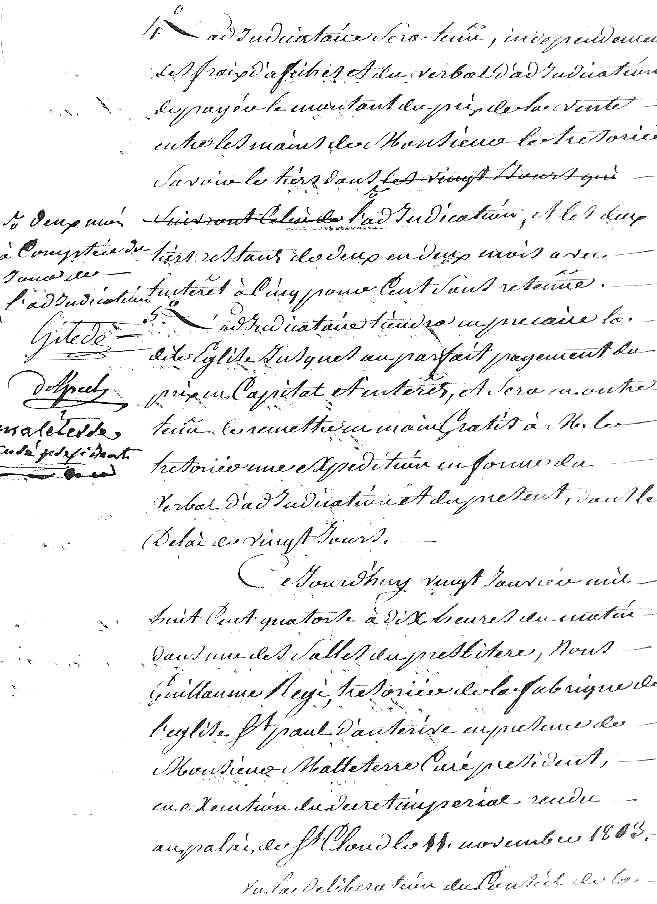 4° L'adjudicataire sera tenu, independemment
des fraix d'afiches et du verbal d'adjudication
de payer le montant du prix de la vente
entre les mains de Monsieur le tresorier
Savoir le tiers dans les vingt jours qui
suivront celui de l'adjudication, et les deux
tiers restans de deux en deux mois avec
interêt à cinq pour cent sans retenue.
5° L'adjudicataire tiendra en precaire la
dite Eglise jusques au parfait payement du
prix en Capital et interêts, et sera en outre
tenu de remettre en main Gratis à M. le
tresorier une expedition en forme du
verbal d'adjudication et du present, dans le
Delai de vingt jours.
Ce jourd'huy vingt janvier mil
huit cent quatorse à dix heures du matin
dans une des salles du presbitere, Nous
Guillaume Regi, tresorier de la fabrique de
l'eglise St paul d'auterive en presence de
Monsieur Malleterre Curé president,
en execution du decret imperial rendu
au palais de St Cloud le 11 novembre 1813.
vu la deliberation du Conseil de la
deux mois
à Compter du
jour de
l'adjudication
curé president